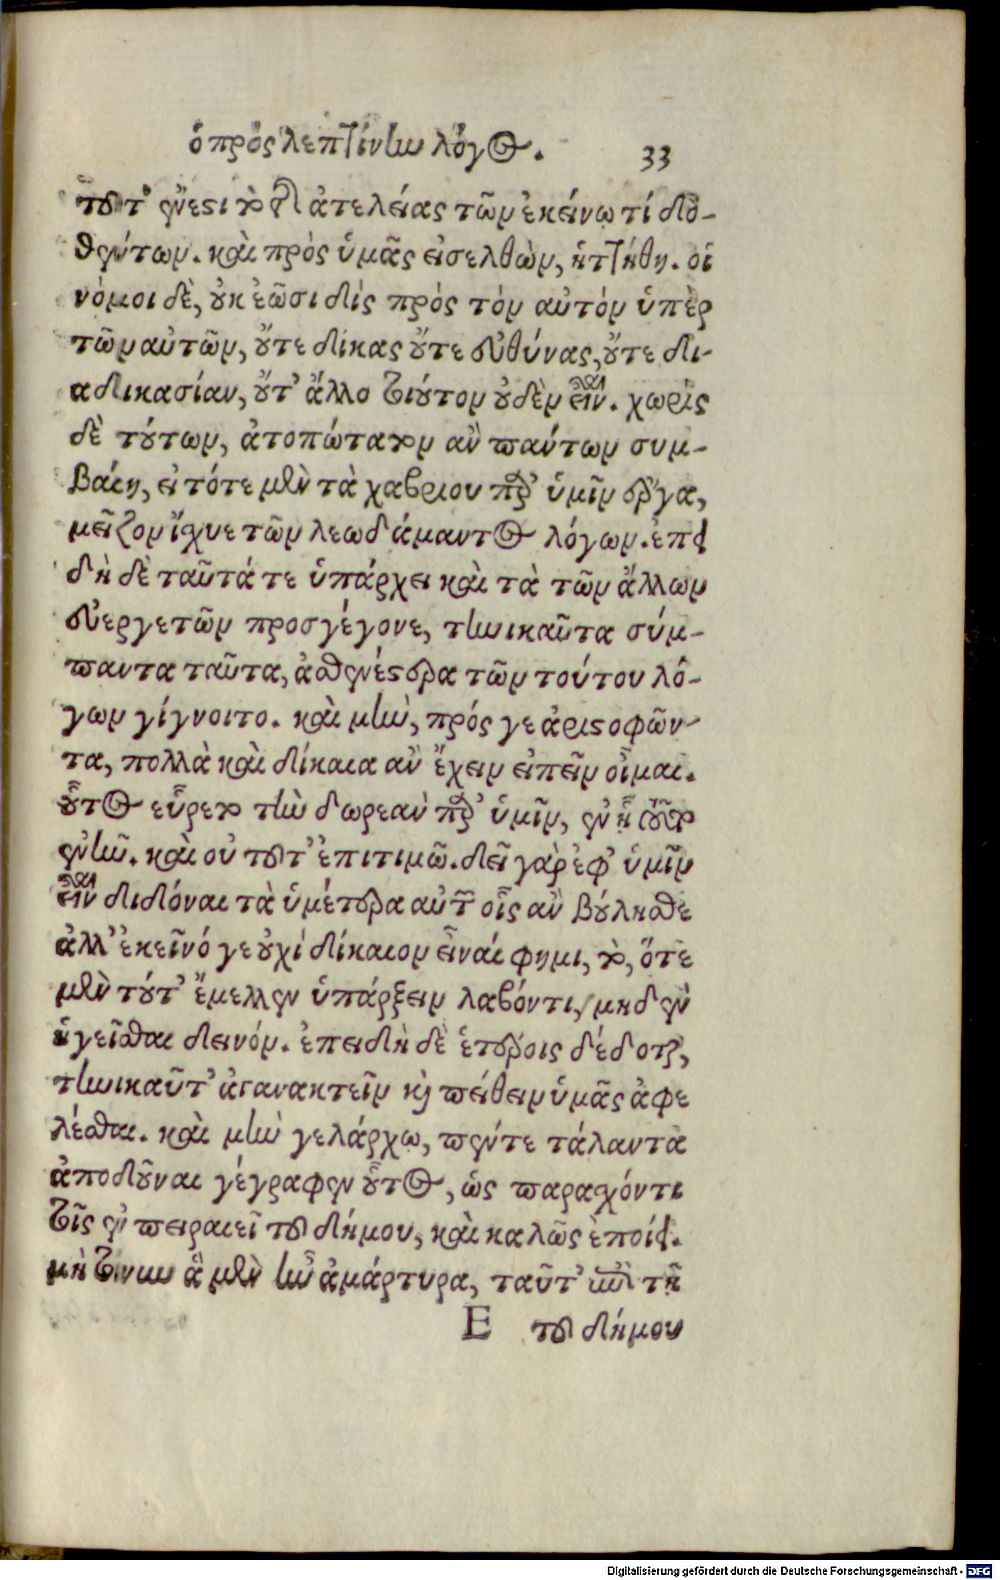 ὁ πρὸς λεπτίνην λόγος. 33
τουτ' ἔνεστι καὶ περὶ ἀτελείας τῶν ἐκείνῳ τί δο-
θέντων. καὶ πρὸς ὑμᾶς εἰσελθὼν, ἡττήθη. οἱ
νόμοι δὲ, οὐκ ἐῶσι δὶς πρὸς τὸν αὐτὸν ὑπὲρ
τῶν αὐτῶν, οὔτε δίκας οὔτε εὐθύνας, οὔτε δι-
αδικασίαν, οὔτ' ἄλλο τοιοῦτον οὐδὲν εἶναι. χωρὶς
δὲ τούτων, ἀτοπώτατον ἂν πάντων συμ-
βαίη, εἰ τότε μὲν τὰ χαβρίου παρ' ὑμῖν ἔργα,
μεῖζον ἴσχυε τῶν λεωδάμαντος λόγων. ἐπει
δὴ δὲ ταῦτά τε ὑπάρχει καὶ τὰ τῶν ἄλλων
εὐεργετῶν προσγέγονε, τηνικαῦτα σύμ-
παντα ταῦτα, ἀσθενέστερα τῶν τούτου λό-
γων γίγνοιτο. καὶ μὴν, πρός γε ἀριστοφῶν-
τα, πολλὰ καὶ δίκαια ἂν ἔχειν εἰπεῖν οἶμαι.
οὗτος εὗρετο τὴν δωρεὰν παρ' ὑμῖν, ἐν ᾗ τοῦτο
ἐνῆν. καὶ οὐ τουτ' ἐπιτιμῶ. δεῖ γὰρ ἐφ' ὑμῖν
εἶναι διδόναι τὰ ὑμέτερα αὐτῶν οἷς ἂν βούλησθε
ἀλλ' ἐκεῖνό γε οὐχὶ δίκαιον εἶναί φημι, τὸ, ὅτε
μὲν τούτ' ἔμελλεν ὑπάρξειν λαβόντι, μηδὲν
ἡγεῖσθαι δεινόν. ἐπειδὴ δὲ ἑτέροις δέδοται,
τηνικαῦτ' ἀγανακτεῖν καὶ πείθειν ὑμᾶς ἀφε
λέσθαι. καὶ μὴν γελάρχῳ, πέντε τάλαντα
ἀποδοῦναι γέγραφεν οὗτος, ὡς παρασχόντι
τοῖς ἐν πειραιεῖ του δήμου, καὶ καλῶς ἐποίει.
μὴ τοίνυν ἃ μὲν ἦν ἀμάρτυρα, ταῦτ' ἐπὶ τῇ
E του δήμου
Digitalisierung gefördert durch die Deutsche Forschungsgemeinschaft - DFG